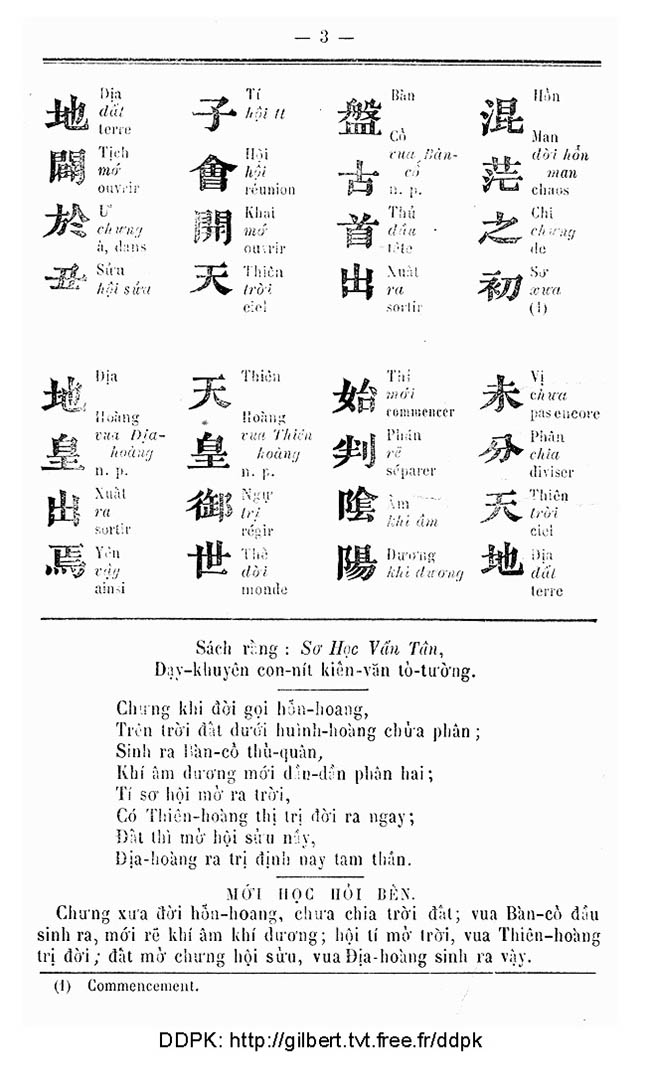 — 3 —
混
Hồn
茫
Man
đời hồn
man
chaos
之
Chi
chưng
de
初
Sơ
xưa
(1)
未
Vị
chưa
pas encore
分
Phân
chia
diviser
天
Thiên
trời
ciel
地
Địa
đất
terre
盤
Bàn
古
Cổ
vua Bàn-
cổ
n. p.
首
Thủ
đầu
tête
出
Xuất
ra
sortir
始
Thỉ
mới
commencer
判
Phán
rẽ
séparer
陰
Âm
khí âm
陽
Dương
khí dương
子
Tí
hội tí
會
Hội
hội
réunion
開
Khai
mở
ouvrir
天
Thiên
trời
ciel
天
Thiên
皇
Hoàng
vua Thiên
hoàng
n. p.
御
Ngự
trị
régir
世
Thế
đời
monde
地
Địa
đất
terre
闢
Tịch
mở
ouvrir
於
Ư
chưng
à, dans
丑
Sửu
hội sửu
地
Địa
皇
Hoàng
vua Địa-
hoàng
n. p.
出
Xuất
ra
sortir
焉
Yên
vậy
ainsi
Sách rằng : Sơ Học Vấn Tân,
Dạy-khuyên con-nít kiến-văn tỏ-tường.
Chưng khi đời gọi hỗn-hoang,
Trên trời đất dưới huình-hoàng chửa phân ;
Sinh ra Bàn-cổ thủ-quân,
Khí âm dương mới dần-dần phân hai ;
Tí sơ hội mở ra trời,
Có Thiên-hoàng thị trị đời ra ngay ;
Đất thì mở hội sửu nầy,
Địa-hoàng ra trị định nay tam thần.
MỚI HỌC HỎI BẾN.
Chưng xưa đời hỗn-hoang, chưa chia trời đất; vua Bàn-cổ đầu
sinh ra, mới rẽ khí âm khí dương; hội tí mở trời, vua Thiên-hoàng
trị đời ; đất mở chưng hội sửu, vua Địa-hoàng sinh ra vậy.
(1) Commencement.
DDPK: http://gilbert.tvt.free.fr/ddpk